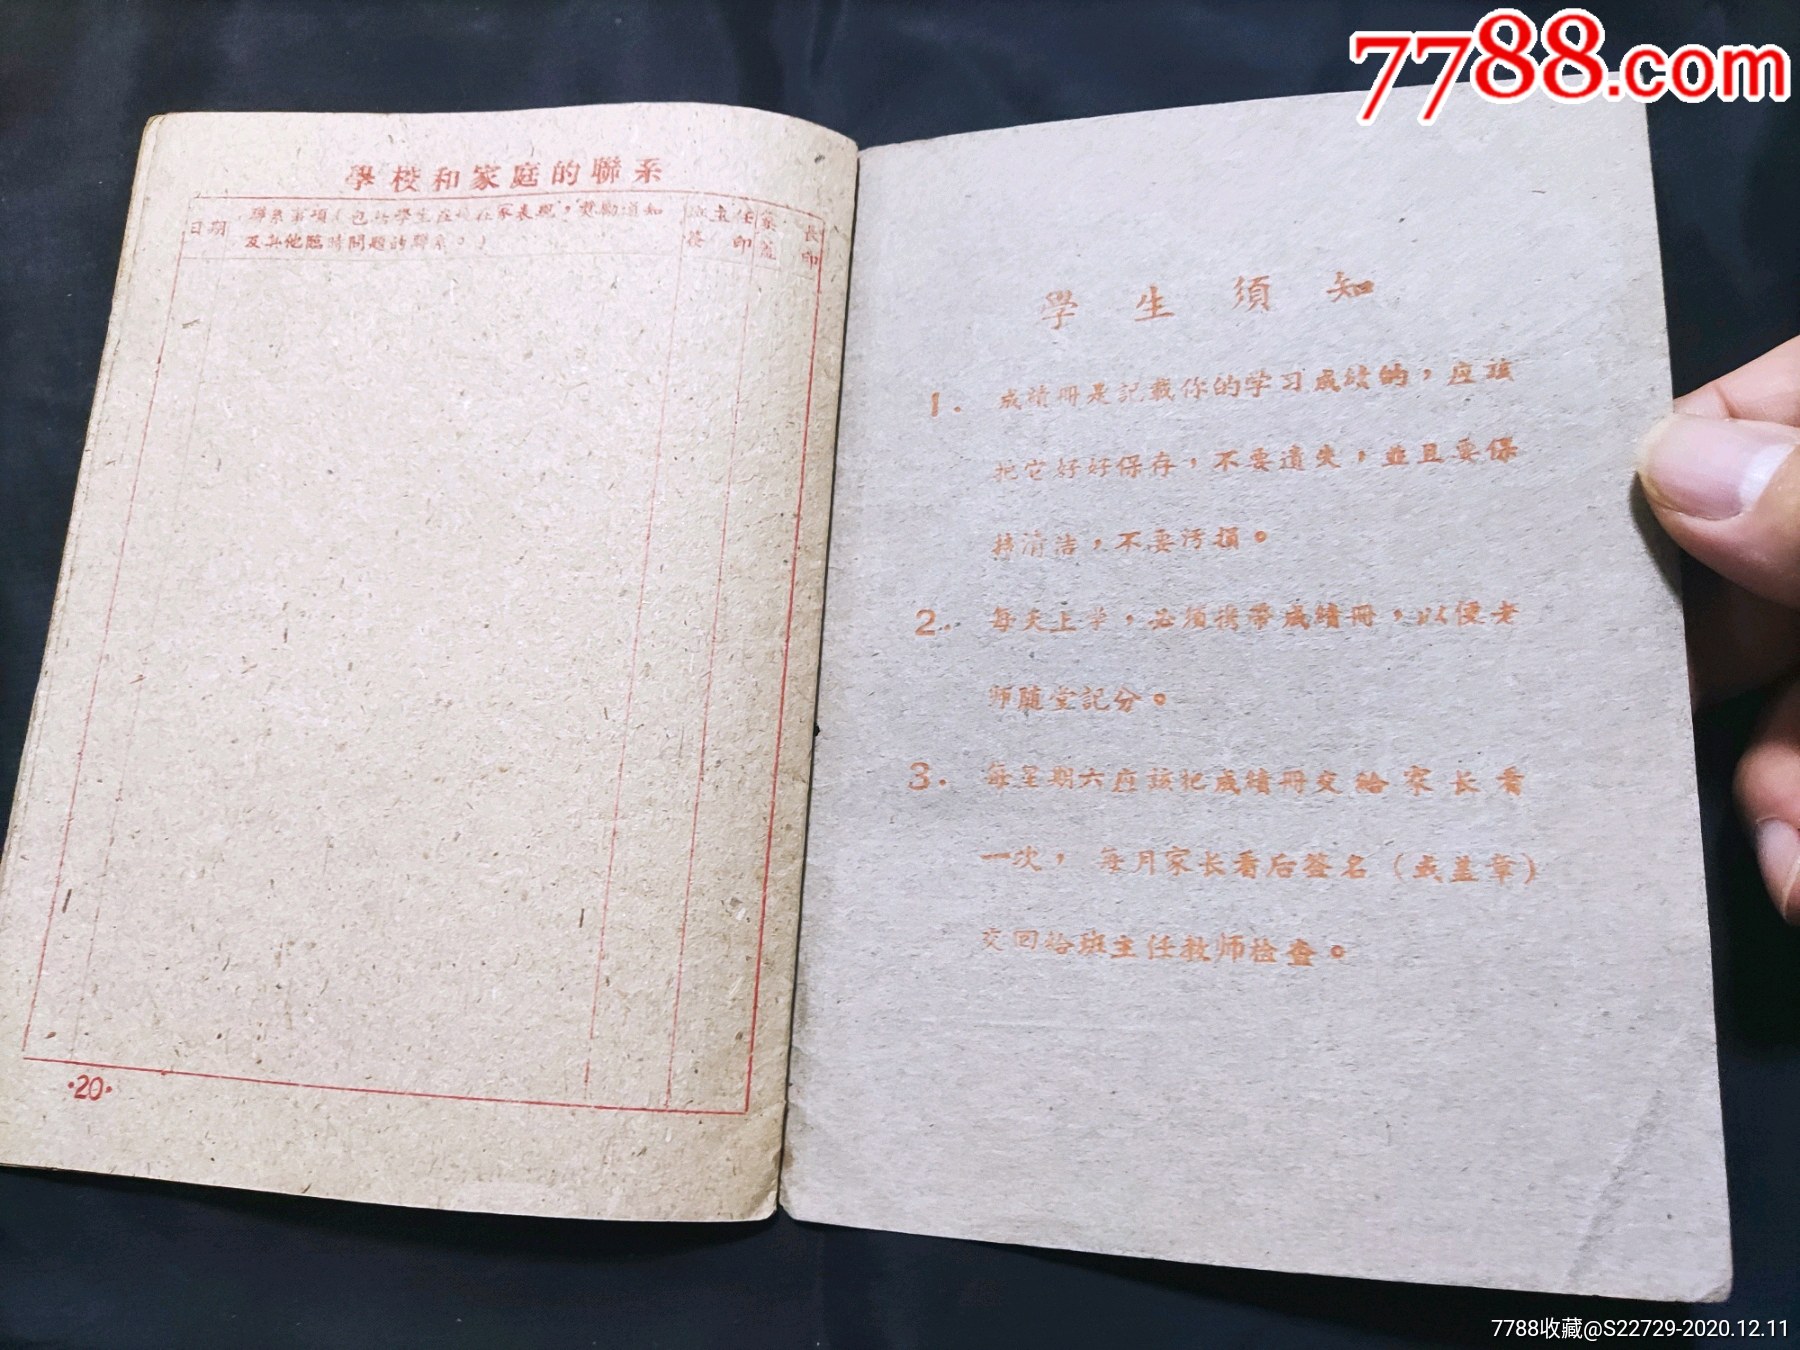 7788.com
學校和家庭的聯系
日期
聯系事項（包括學生在校在家表現，奬勵通知
及其他臨時問題的聯系。）
班主任
簽印
家長
蓋印
·20·
學生須知
1. 成績册是記載你的学习成績的，应該
把它好好保存，不要遺失，並且要保
持清洁，不要污損。
2. 每天上学，必須携帶成績冊，以便老
师隨堂記分。
3. 每星期六应該把成績冊交給家长看
一次，每月家长看后签名（或盖章）
交回給班主任教师检查。
7788收藏@S22729-2020.12.11